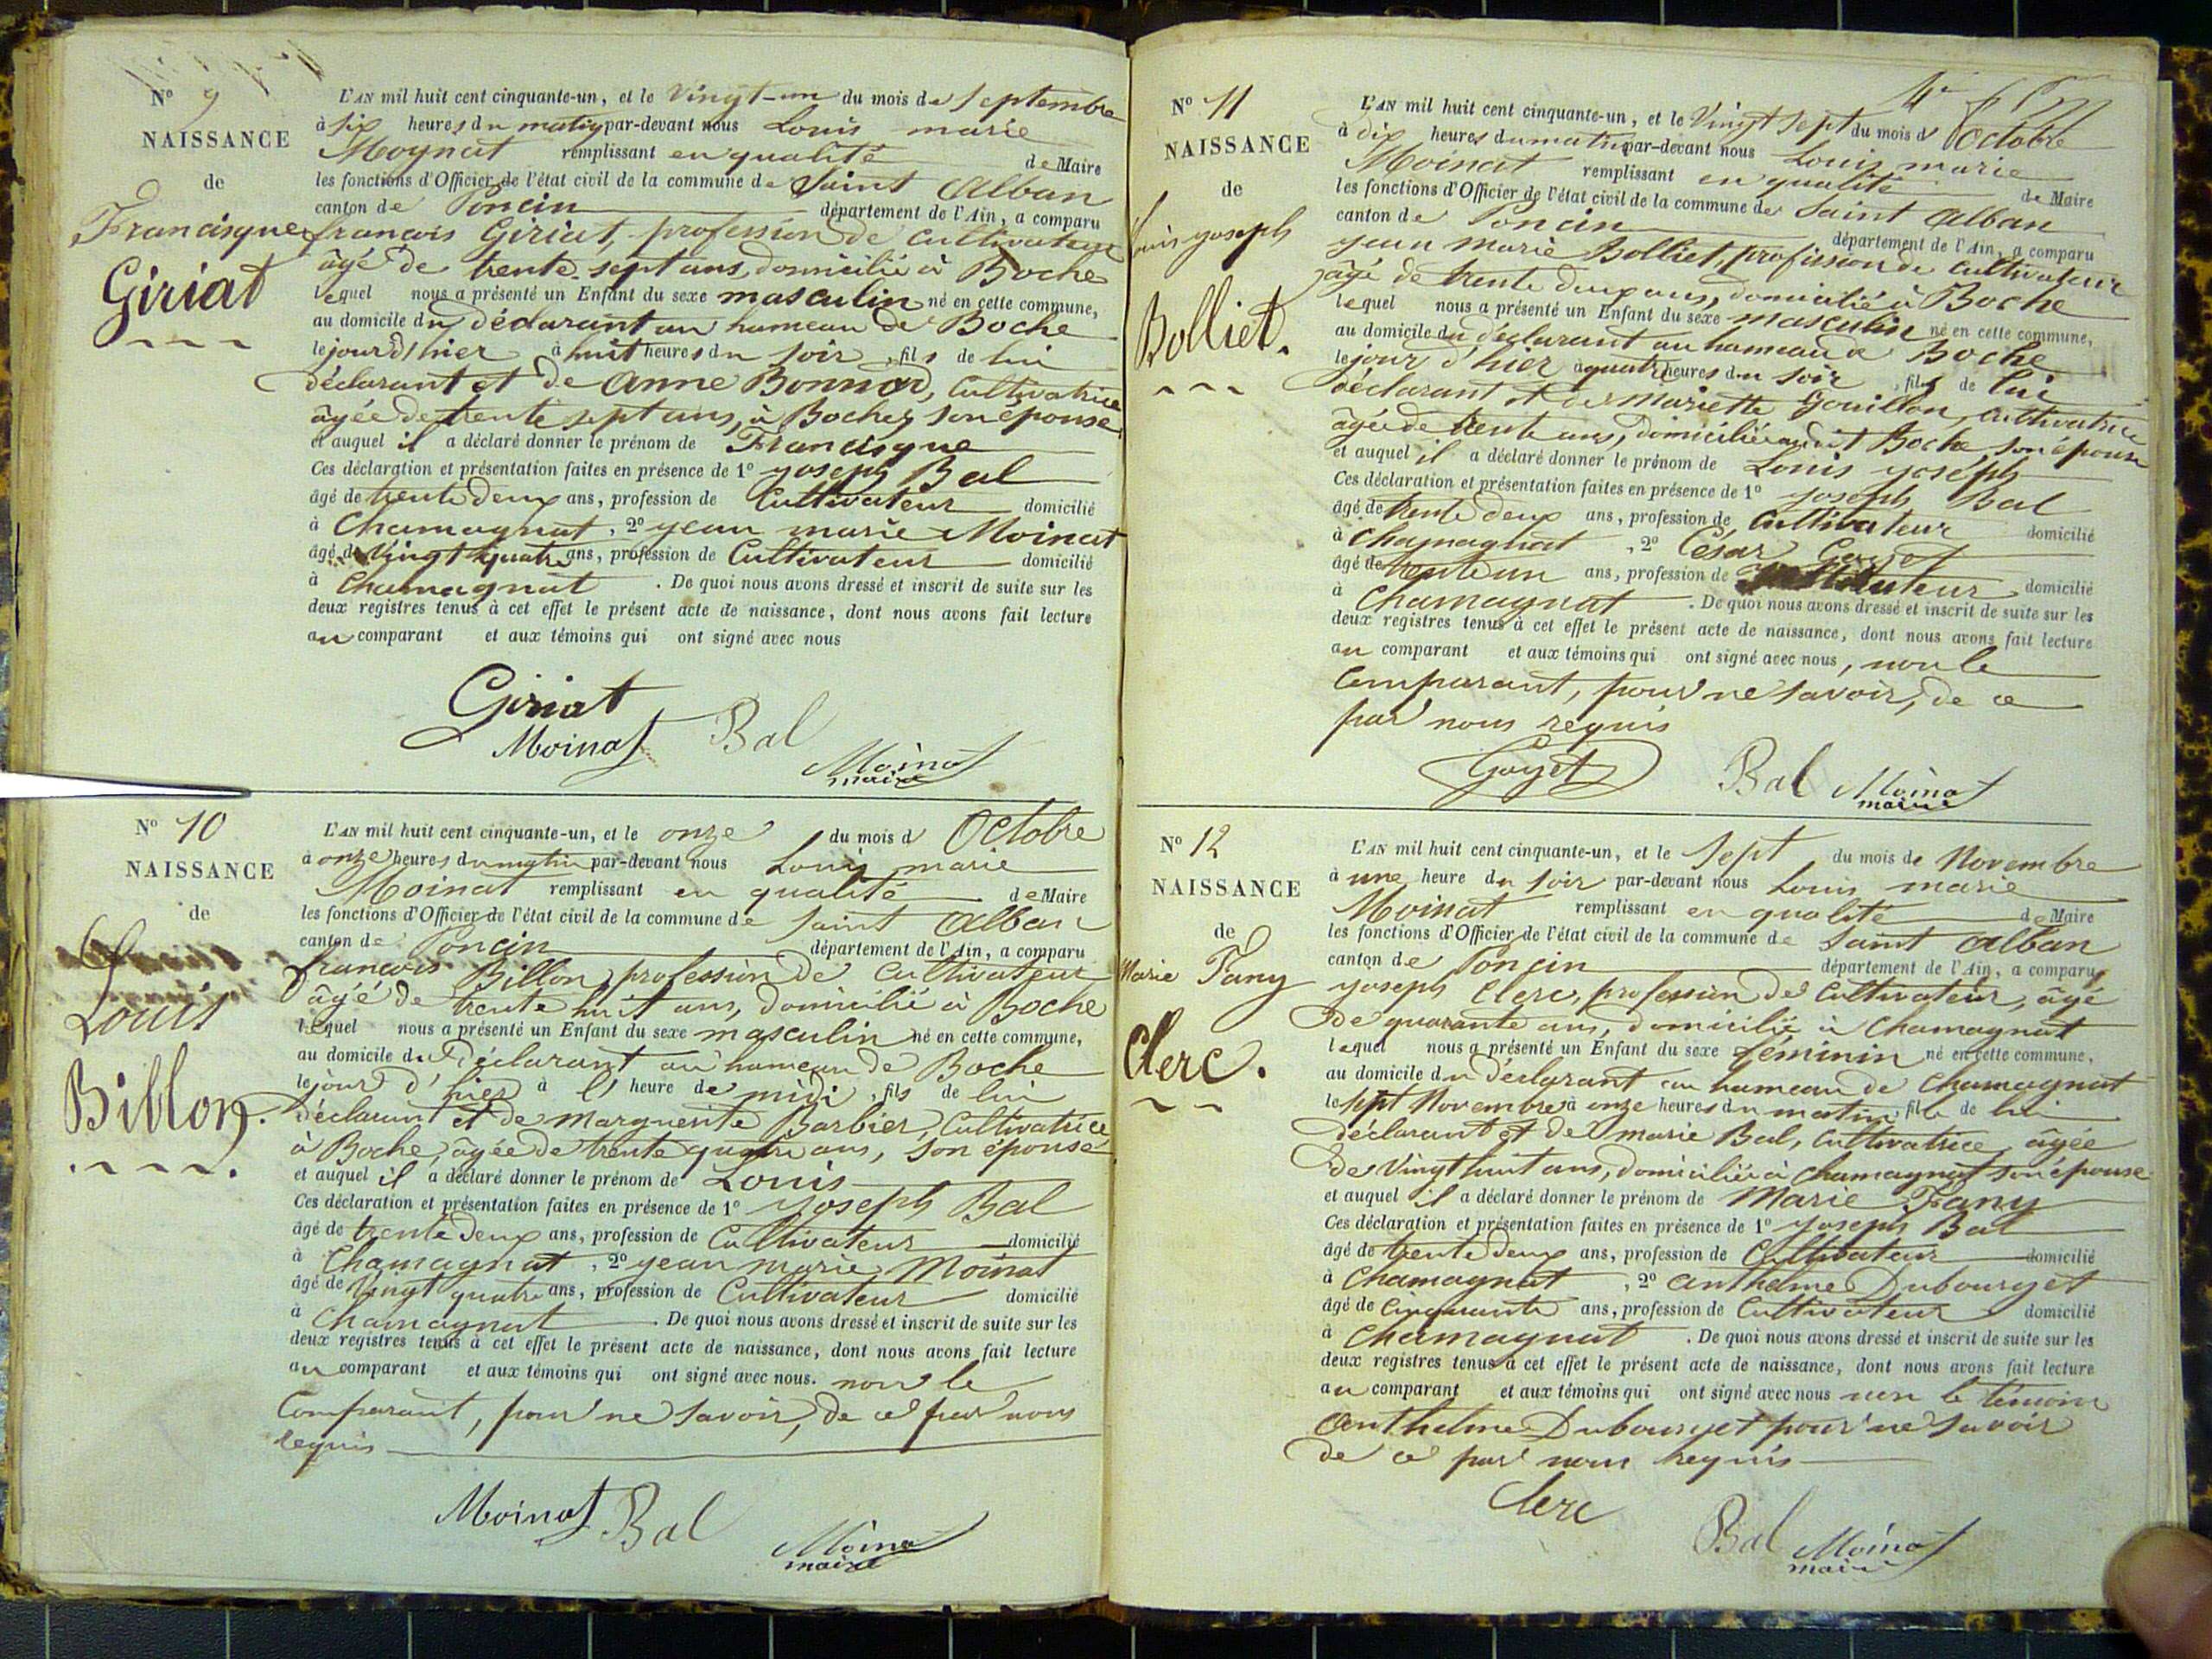 N° 9
NAISSANCE
de
Francisque
Giriat
L'AN mil huit cent cinquante-un, et le Vingt-un du mois de Septembre
à Six heures du matin par-devant nous Louis marie
Moynat remplissant en qualité de Maire
les fonctions d'Officier de l'état civil de la commune de Saint Alban
canton de Poncin département de l'Ain, a comparu
francois Giriat, profession de Cultivateur
âgé de trente-sept ans, domicilié à Boche
lequel nous a présenté un Enfant du sexe masculin né en cette commune,
au domicile du déclarant au hameau de Boche
le jour d'hier à huit heures du soir, fils de lui
déclarant et de Anne Bonnard, Cultivatrice
âgée de trente sept ans, à Boche, son épouse
et auquel il a déclaré donner le prénom de Francisque
Ces déclaration et présentation faites en présence de 1° yoseph Bal
âgé de trente deux ans, profession de Cultivateur domicilié
à Chamagnat, 2° yean marie Moinat
âgé de Vingt quatre ans, profession de Cultivateur domicilié
à Chamagnat. De quoi nous avons dressé et inscrit de suite sur les
deux registres tenus à cet effet le présent acte de naissance, dont nous avons fait lecture
au comparant et aux témoins qui ont signé avec nous
Giriat
Moinat Bal
Moinat
maire
N° 10
NAISSANCE
de
Louis
Billon.
L'AN mil huit cent cinquante-un, et le onze du mois d Octobre
à onze heures du matin par-devant nous Louis marie
Moinat remplissant en qualité de Maire
les fonctions d'Officier de l'état civil de la commune de Saint Alban
canton de Poncin département de l'Ain, a comparu
francois Billon, profession de Cultivateur
âgé de trente huit ans, domicilié à Boche
lequel nous a présenté un Enfant du sexe masculin né en cette commune,
au domicile du Déclarant au hameau de Boche
le jour d'hier à l'heure de midi, fils de lui
déclarant et de Marguerite Barbier, Cultivatrice
à Boche, âgée de trente quatre ans, son épouse
et auquel il a déclaré donner le prénom de Louis
Ces déclaration et présentation faites en présence de 1° yoseph Bal
âgé de trente deux ans, profession de Cultivateur domicilié
à Chamagnat, 2° yean marie Moinat
âgé de Vingt quatre ans, profession de Cultivateur domicilié
à Chamagnat. De quoi nous avons dressé et inscrit de suite sur les
deux registres tenus à cet effet le présent acte de naissance, dont nous avons fait lecture
au comparant et aux témoins qui ont signé avec nous. non le
Comparant, pour ne savoir, de ce par nous
requis
Moinat Bal
Moinat
maire
N° 11
NAISSANCE
de
Louis yoseph
Bolliet.
L'AN mil huit cent cinquante-un, et le Vingt Sept du mois d'Octobre
à dix heures du matin par-devant nous Louis marie
Moinat remplissant en qualité de Maire
les fonctions d'Officier de l'état civil de la commune de Saint Alban
canton de Poncin département de l'Ain, a comparu
yean marie Bolliet, profession de Cultivateur
âgé de trente deux ans, domicilié à Boche
lequel nous a présenté un Enfant du sexe masculin né en cette commune,
au domicile du déclarant au hameau de Boche
le jour d'hier à quatre heures du soir, fils de lui
déclarant et de Mariette Gouillon, Cultivatrice
âgée de trente ans, domiciliée audit Boche, son épouse
et auquel il a déclaré donner le prénom de Louis yoseph
Ces déclaration et présentation faites en présence de 1° yoseph Bal
âgé de trente deux ans, profession de Cultivateur domicilié
à Chamagnat, 2° César Goyet
âgé de trente un ans, profession de Instituteur domicilié
à Chamagnat. De quoi nous avons dressé et inscrit de suite sur les
deux registres tenus à cet effet le présent acte de naissance, dont nous avons fait lecture
au comparant et aux témoins qui ont signé avec nous, non le
Comparant, pour ne savoir, de ce
par nous requis
Goyet Bal Moinat
maire
N° 12
NAISSANCE
de
Marie Fany
Clerc.
L'AN mil huit cent cinquante-un, et le Sept du mois de Novembre
à une heure du Soir par-devant nous Louis marie
Moinat remplissant en qualité de Maire
les fonctions d'Officier de l'état civil de la commune de Saint Alban
canton de Poncin département de l'Ain, a comparu
yoseph Clerc, profession de Cultivateur, âgé
de quarante ans, domicilié à Chamagnat
lequel nous a présenté un Enfant du sexe féminin né en cette commune,
au domicile du déclarant au hameau de Chamagnat
le sept Novembre à onze heures du matin, fille de lui
déclarant et de marie Bal, Cultivatrice, âgée
de Vingt huit ans, domiciliée à Chamagnat son épouse
et auquel il a déclaré donner le prénom de Marie Fany
Ces déclaration et présentation faites en présence de 1° yoseph Bal
âgé de trente deux ans, profession de Cultivateur domicilié
à Chamagnat, 2° anthelme Dubourget
âgé de Cinquante ans, profession de Cultivateur domicilié
à Chamagnat. De quoi nous avons dressé et inscrit de suite sur les
deux registres tenus à cet effet le présent acte de naissance, dont nous avons fait lecture
au comparant et aux témoins qui ont signé avec nous non le témoin
Anthelme Dubourget pour ne savoir
de ce par nous requis
Clerc
Bal Moinat
maire